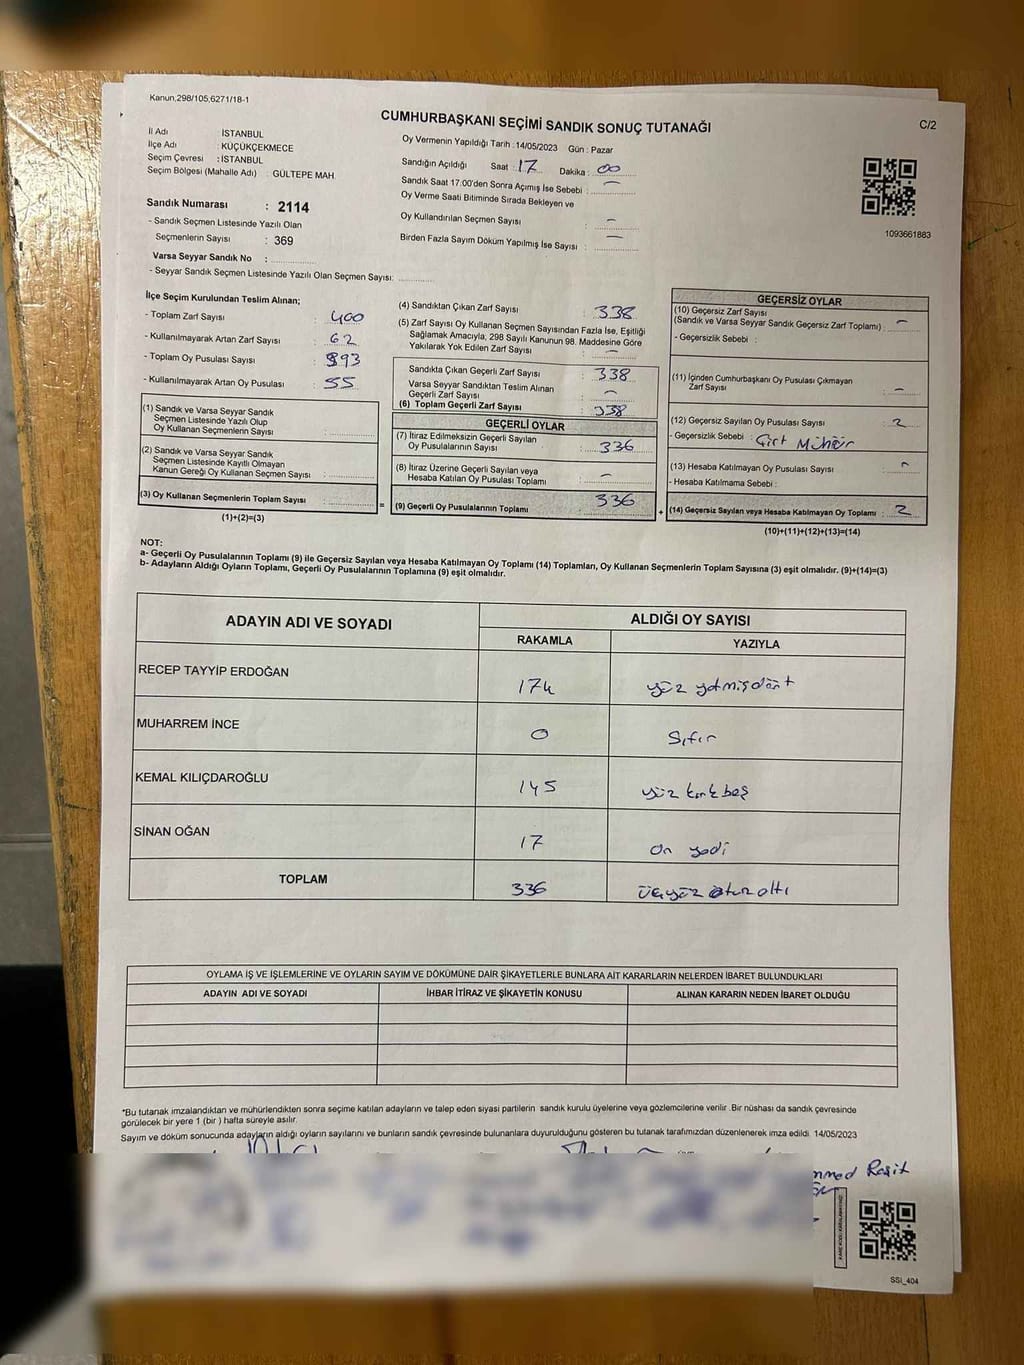 Kanun,298/105,6271/18-1
CUMHURBAŞKANI SEÇİMİ SANDIK SONUÇ TUTANAĞI
C/2
İl Adı : İSTANBUL
İlçe Adı : KÜÇÜKÇEKMECE
Seçim Çevresi : İSTANBUL
Seçim Bölgesi (Mahalle Adı) : GÜLTEPE MAH.
Sandık Numarası : 2114
- Sandık Seçmen Listesinde Yazılı Olan
Seçmenlerin Sayısı : 369
Varsa Seyyar Sandık No :
- Seyyar Sandık Seçmen Listesinde Yazılı Olan Seçmen Sayısı:
Oy Vermenin Yapıldığı Tarih : 14/05/2023 Gün : Pazar
Sandığın Açıldığı Saat : 17 Dakika : 00
Sandık Saat 17.00'den Sonra Açımış İse Sebebi : —
Oy Verme Saati Bitiminde Sırada Bekleyen ve
Oy Kullandırılan Seçmen Sayısı : —
Birden Fazla Sayım Döküm Yapılmış İse Sayısı : —
1093661883
İlçe Seçim Kurulundan Teslim Alınan;
- Toplam Zarf Sayısı : 400
- Kullanılmayarak Artan Zarf Sayısı : 62
- Toplam Oy Pusulası Sayısı : 393
- Kullanılmayarak Artan Oy Pusulası : 55
(1) Sandık ve Varsa Seyyar Sandık
Seçmen Listesinde Yazılı Olup
Oy Kullanan Seçmenlerin Sayısı :
(2) Sandık ve Varsa Seyyar Sandık
Seçmen Listesinde Kayıtlı Olmayan
Kanun Gereği Oy Kullanan Seçmen Sayısı :
(3) Oy Kullanan Seçmenlerin Toplam Sayısı :
(1)+(2)=(3)
=
(4) Sandıktan Çıkan Zarf Sayısı : 338
(5) Zarf Sayısı Oy Kullanan Seçmen Sayısından Fazla İse, Eşitliği
Sağlamak Amacıyla, 298 Sayılı Kanunun 98. Maddesine Göre
Yakılarak Yok Edilen Zarf Sayısı : —
Sandıkta Çıkan Geçerli Zarf Sayısı : 338
Varsa Seyyar Sandıktan Teslim Alınan
Geçerli Zarf Sayısı : —
(6) Toplam Geçerli Zarf Sayısı : 338
GEÇERLİ OYLAR
(7) İtiraz Edilmeksizin Geçerli Sayılan
Oy Pusulalarının Sayısı : 336
(8) İtiraz Üzerine Geçerli Sayılan veya
Hesaba Katılan Oy Pusulası Toplamı : —
(9) Geçerli Oy Pusulalarının Toplamı : 336
+
GEÇERSİZ OYLAR
(10) Geçersiz Zarf Sayısı
(Sandık ve Varsa Seyyar Sandık Geçersiz Zarf Toplamı) : —
- Geçersizlik Sebebi :
(11) İçinden Cumhurbaşkanı Oy Pusulası Çıkmayan
Zarf Sayısı : —
(12) Geçersiz Sayılan Oy Pusulası Sayısı : 2
- Geçersizlik Sebebi : Çirt Mühür
(13) Hesaba Katılmayan Oy Pusulası Sayısı : —
- Hesaba Katılmama Sebebi :
(14) Geçersiz Sayılan veya Hesaba Katılmayan Oy Toplamı : 2
(10)+(11)+(12)+(13)=(14)
NOT:
a- Geçerli Oy Pusulalarının Toplamı (9) ile Geçersiz Sayılan veya Hesaba Katılmayan Oy Toplamı (14) Toplamları, Oy Kullanan Seçmenlerin Toplam Sayısına (3) eşit olmalıdır. (9)+(14)=(3)
b- Adayların Aldığı Oyların Toplamı, Geçerli Oy Pusulalarının Toplamına (9) eşit olmalıdır.
ADAYIN ADI VE SOYADI
ALDIĞI OY SAYISI
RAKAMLA YAZIYLA
RECEP TAYYİP ERDOĞAN 174 yüz yetmişdört
MUHARREM İNCE 0 Sıfır
KEMAL KILIÇDAROĞLU 145 yüz kırk beş
SİNAN OĞAN 17 on yedi
TOPLAM 336 üçyüz otuz altı
OYLAMA İŞ VE İŞLEMLERİNE VE OYLARIN SAYIM VE DÖKÜMÜNE DAİR ŞİKAYETLERLE BUNLARA AİT KARARLARIN NELERDEN İBARET BULUNDUKLARI
ADAYIN ADI VE SOYADI İHBAR İTİRAZ VE ŞİKAYETİN KONUSU ALINAN KARARIN NEDEN İBARET OLDUĞU
*Bu tutanak imzalandıktan ve mühürlendikten sonra seçime katılan adayların ve talep eden siyasi partilerin sandık kurulu üyelerine veya gözlemcilerine verilir .Bir nüshası da sandık çevresinde
görülecek bir yere 1 (bir ) hafta süreyle asılır.
Sayım ve döküm sonucunda adayların aldığı oyların sayılarını ve bunların sandık çevresinde bulunanlara duyurulduğunu gösteren bu tutanak tarafımızdan düzenlenerek imza edildi. 14/05/2023
mmed Raşit
SSİ_404